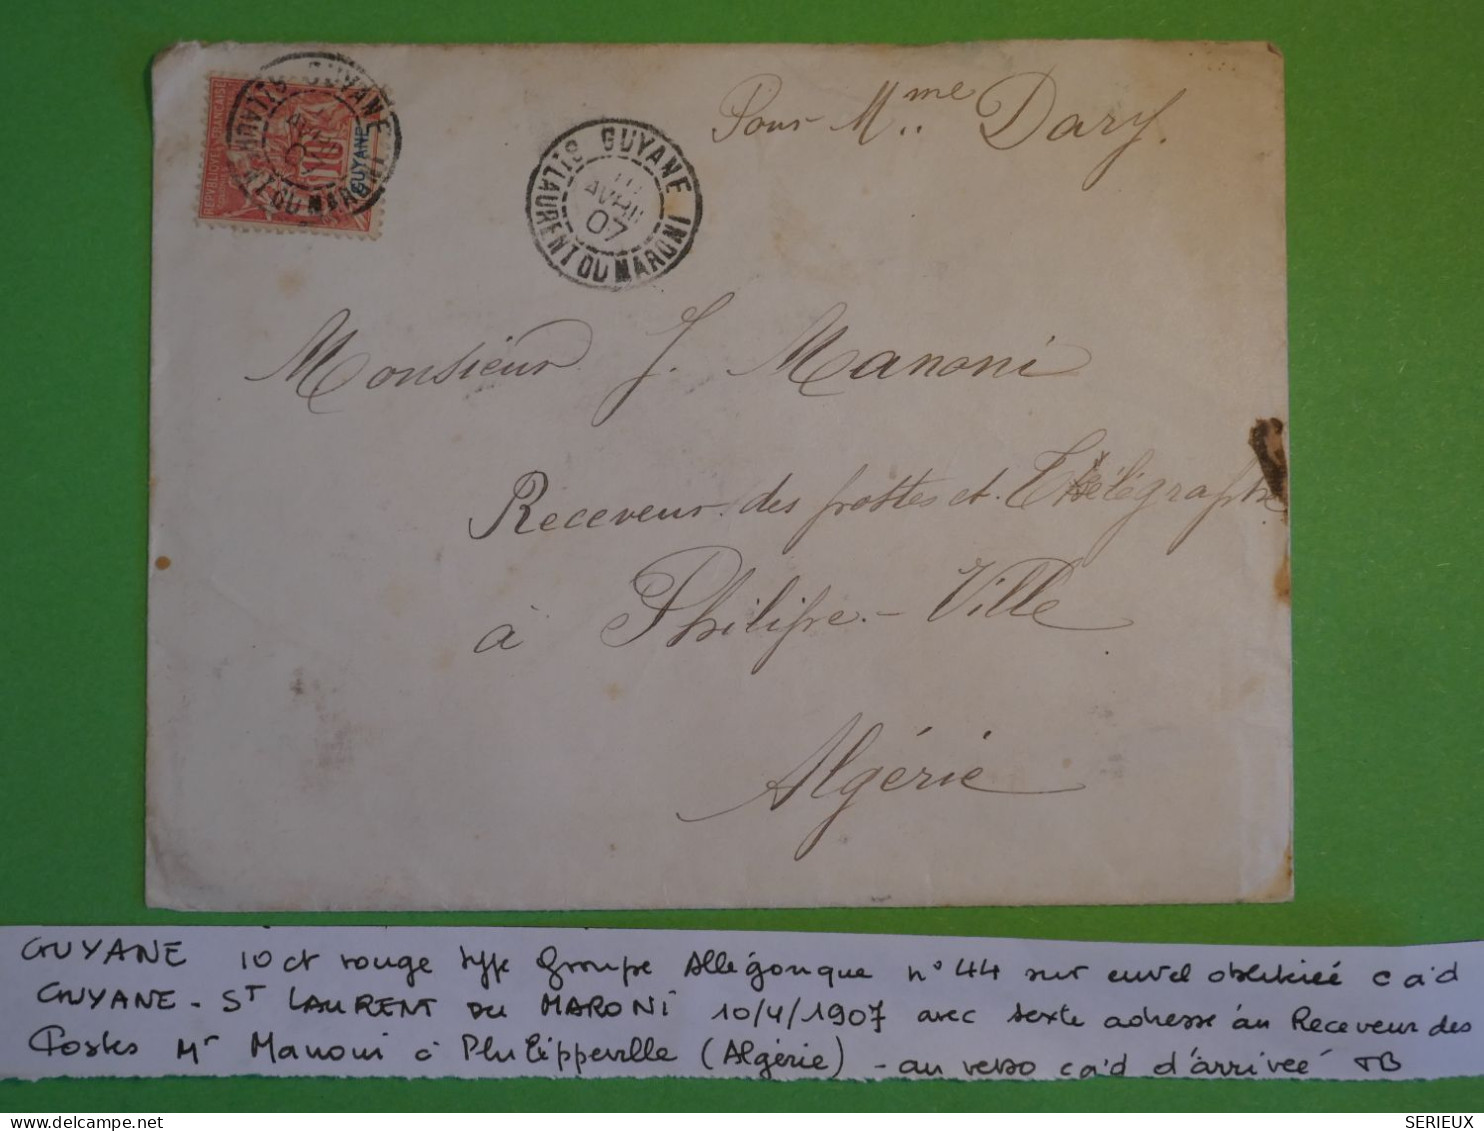 Pour Mme Dary.
GUYANE
10
AVRIL
07
ST LAURENT DU MARONI
GUYANE
ST LAURENT DU MARONI
REPUBLIQUE FRANÇAISE
10
GUYANE
Monsieur J. Manoni
Receveur des postes et Télégraphe
à Philippe-Ville
Algérie
GUYANE 10 ct rouge type Groupe Allégorique n° 44 sur envel oblitérée càd
GUYANE - ST LAURENT DU MARONI 10/4/1907 avec texte adresse au Receveur des
Postes Mr Manoni à Philippeville (Algérie) - au verso càd d'arrivée TB
SERIEUX